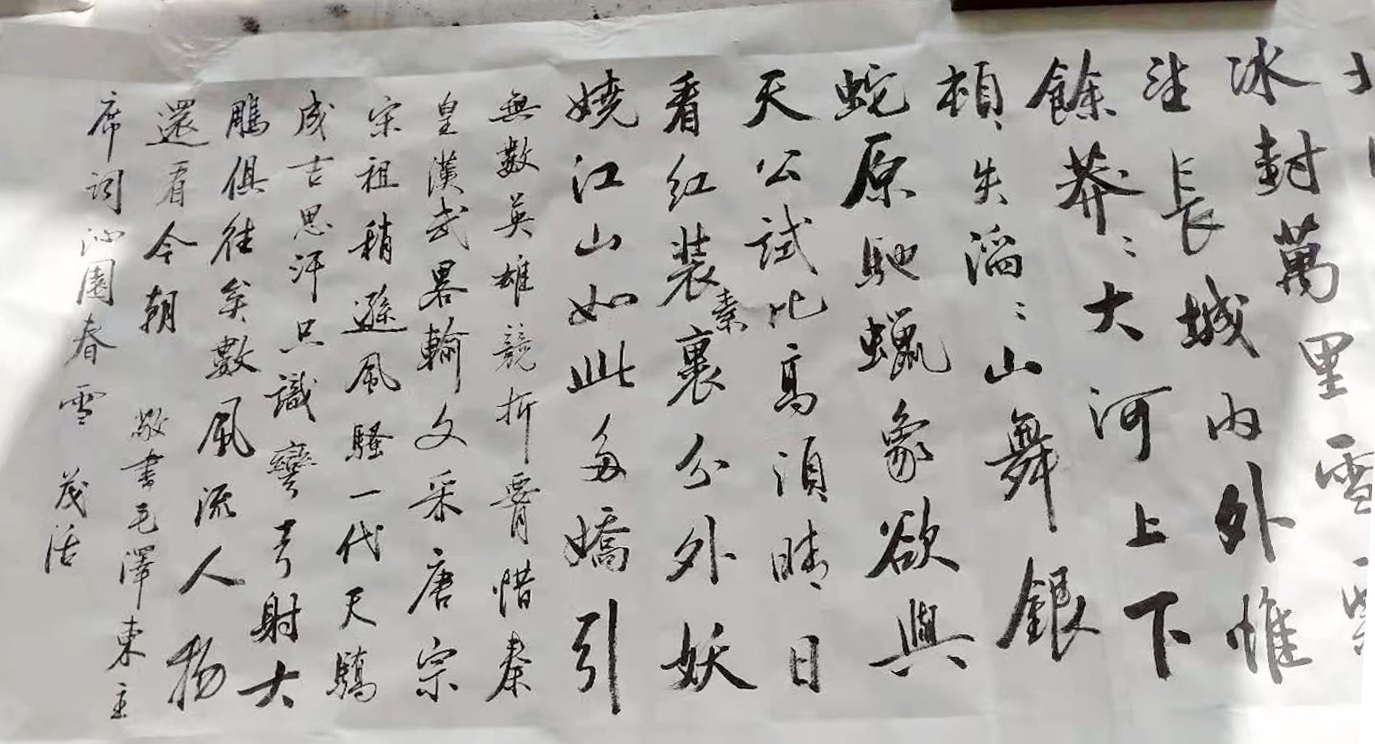 冰封萬里雪
望長城内外惟
餘莽〻大河上下
頓失滔〻山舞銀
蛇原馳蠟象欲與
天公試比高須晴日
看紅装素裹分外妖
嬈江山如此多嬌引
無數英雄競折腰惜秦
皇漢武畧輸文采唐宗
宋祖稍遜風騷一代天驕
成吉思汗只識彎弓射大
鵰俱往矣數風流人物
還看今朝 敬書毛澤東主
席詞沁園春雪 茂活